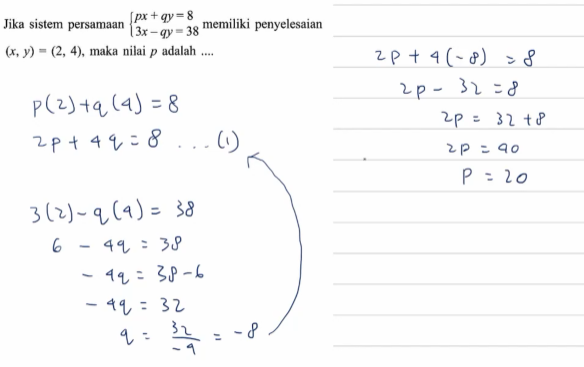 Jika sistem persamaan { px + qy = 8
3x − qy = 38 memiliki penyelesaian
(x, y) = (2, 4), maka nilai p adalah ....
p(2)+q(4) = 8
2p + 4q = 8 ... (1)
3(2) − q(4) = 38
6 − 4q = 38
− 4q = 38 − 6
− 4q = 32
q = 32/−4 = −8
2p + 4(−8) = 8
2p − 32 = 8
2p = 32 + 8
2p = 40
p = 20